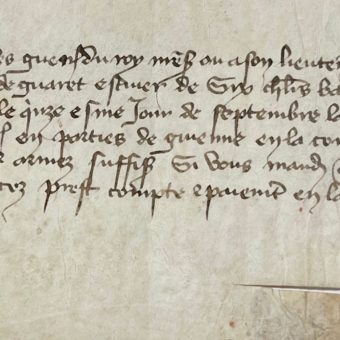 guerres du roy mess ou a son lieuten
de guaret escuier de Six chlrs ba
le q'nze esme Jour de septembre la
en parties de guienne en la co
armez suffiss Si vous mand
prest compte e paiement en la